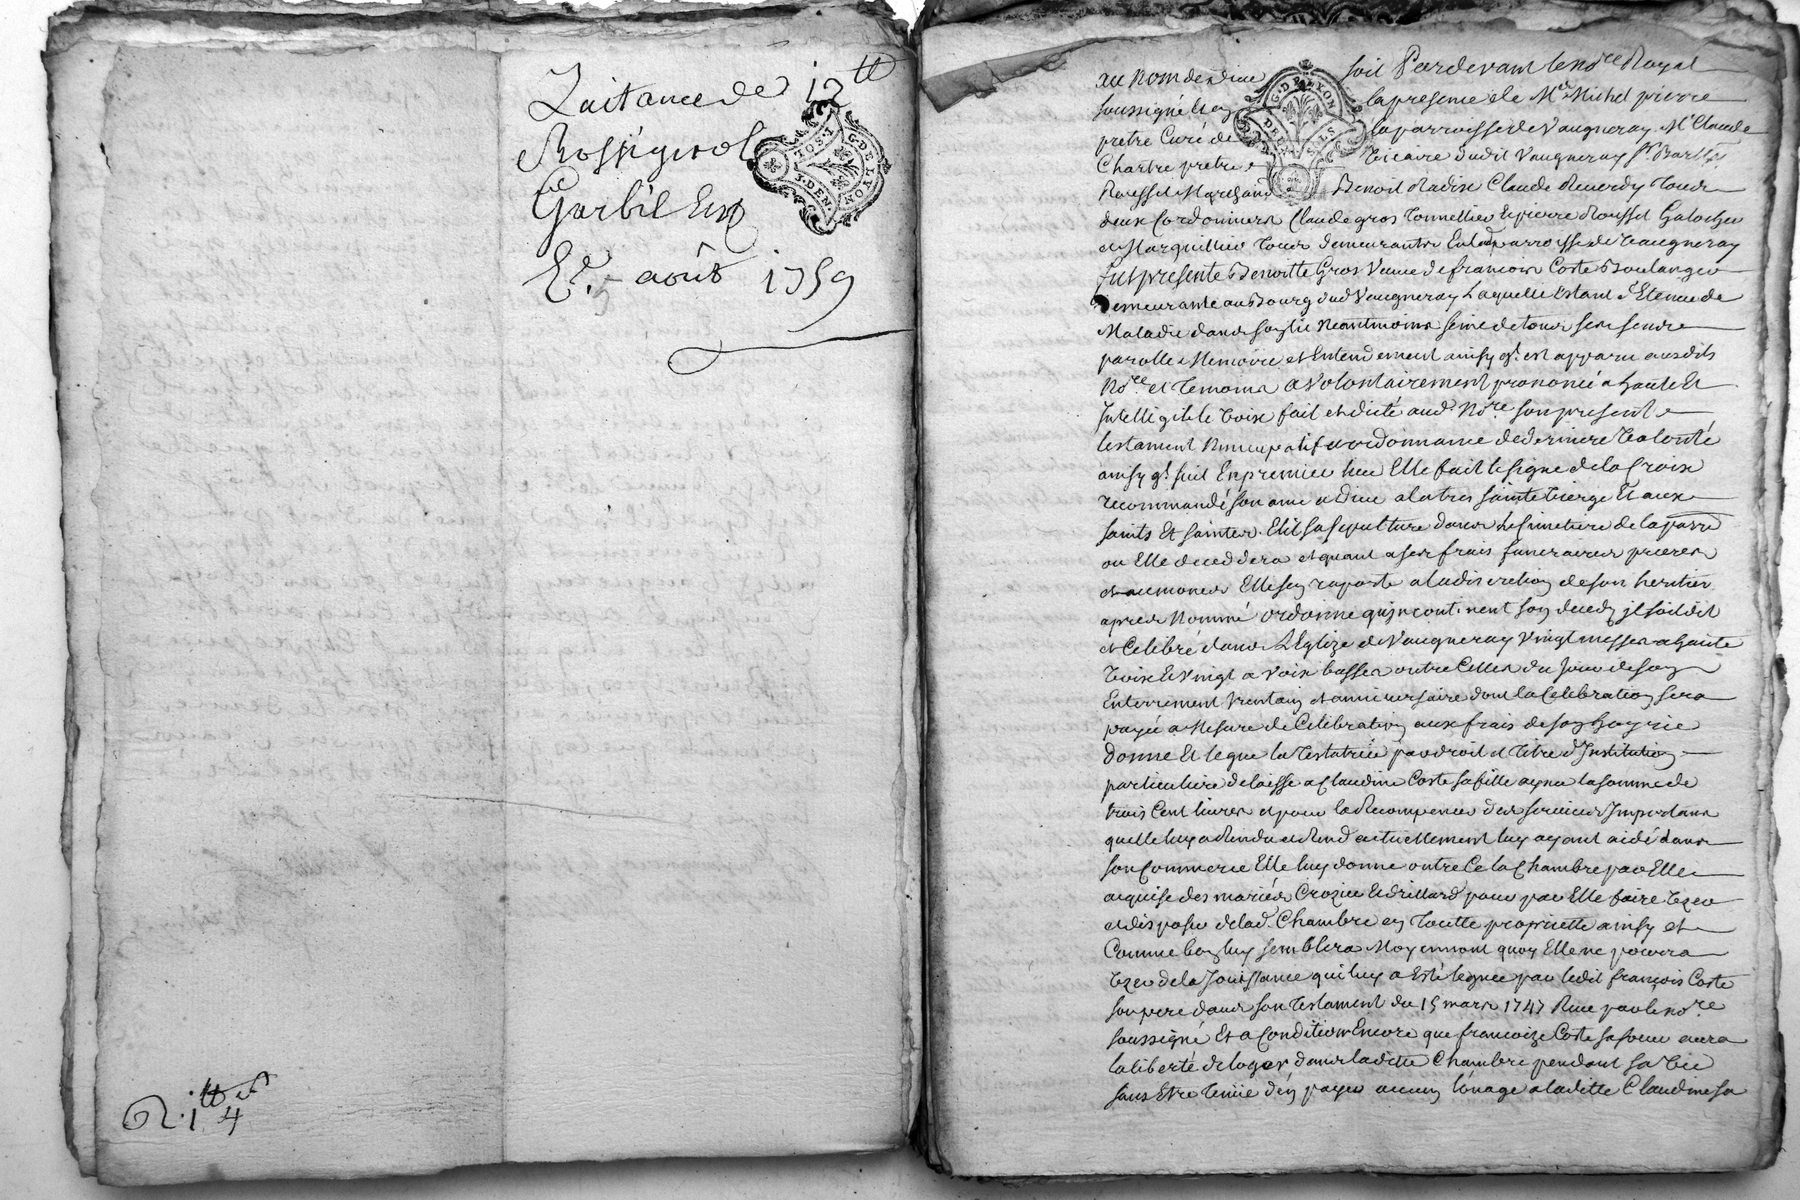 Quitance de 12tt
Rossignol
Garbil
Du 5 août 1759
R. 1tt 4s
G. DE LYON
TOS. 1
3. DEN.
G. DE LYON
DEUX SOLS
au nom de dieu soit Pardevant le no.re Royal
soussigné et en la presence de Me Michel pierre
pretre Curé de la parroisse de Vaugneray Mr Claude
Chartre pretre vicaire dudit Vaugneray Sr Barth.
Rousset Marchand Benoit Radix Claude Reverdy tous
deux Cordonniers Claude gros tonnellier et pierre Rousset Galocher
et Marguillier tous demeurants en lad. parroisse de Vaugneray
fut presente Benoitte Gros veuve de francois Coste Boulanger
demeurante au Bourg dud Vaugneray Laquelle Estant detenue de
Maladie dans son lit neantmoins seine de tous ses sens
parolle Memoire et Entendement ainsy q.l est apparu auxdits
No.re et temoins a volontairement prononcé a haute et
Intelligible voix fait et dicté aud. No.re son present
testament Nuncupatif et ordonnance de derniere volonté
ainsy q.l suit En premier lieu Elle fait le signe de la Croix
recommandé son ame a Dieu a la tres sainte vierge Et aux
saints Et saintes. Elit sa sepulture dans le simetiere de la parre
ou Elle deceddera et quant a ses frais funeraires prieres
et aumones Elle sen raporte a la discretion de son heritier
apres Nommé ordonne qu'incontinent son decedz il soit dit
et Celebré dans L'Eglize de Vaugneray vingt messes a haute
voix Et vingt a voix basses outre Celles du Jour de son
Enterrement trentain et anniversaire dont la Celebration sera
payée a Mesure de Celebration aux frais de son hoyrie
Donne Et legue la testatrice par droit et titre d'Institution
particuliere delaisse a Claudine Coste sa fille aynee la somme de
trois Cent livres et pour la Recompence des services Importans
quelle luy a Rendu et Rend actuellement luy ayant aidé dans
son Commerce Elle luy donne outre Ce la Chambre par Elle
acquise des mariés Crozier et drillard pour par Elle faire uzer
et disposer de lad. Chambre en toutte proprietté ainsy et
Comme bon luy semblera Moyennant quoy Elle ne pourra
uzer de la Jouissance qui luy a Esté leguee par ledit françois Coste
son pere dans son testament du 15 mars 1747 Receu par le no.re
soussigné Et a Condition Encore que francoize Coste sa soeur aura
la liberté de loger dans laditte Chambre pendant sa vie
sans Etre tenüe d'en payer aucun loüage a laditte Claudine sa